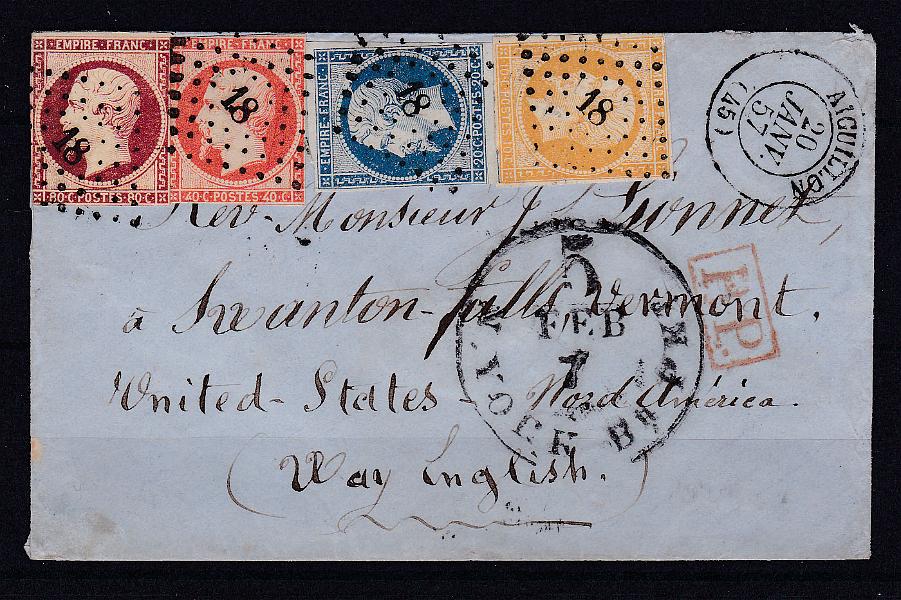 EMPIRE FRANC.
80·C·POSTES·80·C·
18
EMPIRE FRANC.
40·C·POSTES·40·C·
18
EMPIRE·FRANC·
20·C·POSTES·20·C·
18
10·C·POSTES·10·C·
18
AIGUILLON
20
JANV.
57
(45)
Rev. Monsieur J.
à Swanton-falls Vermont.
United-States - Nord América.
(Way English.)
5
FEB
7
P.P.